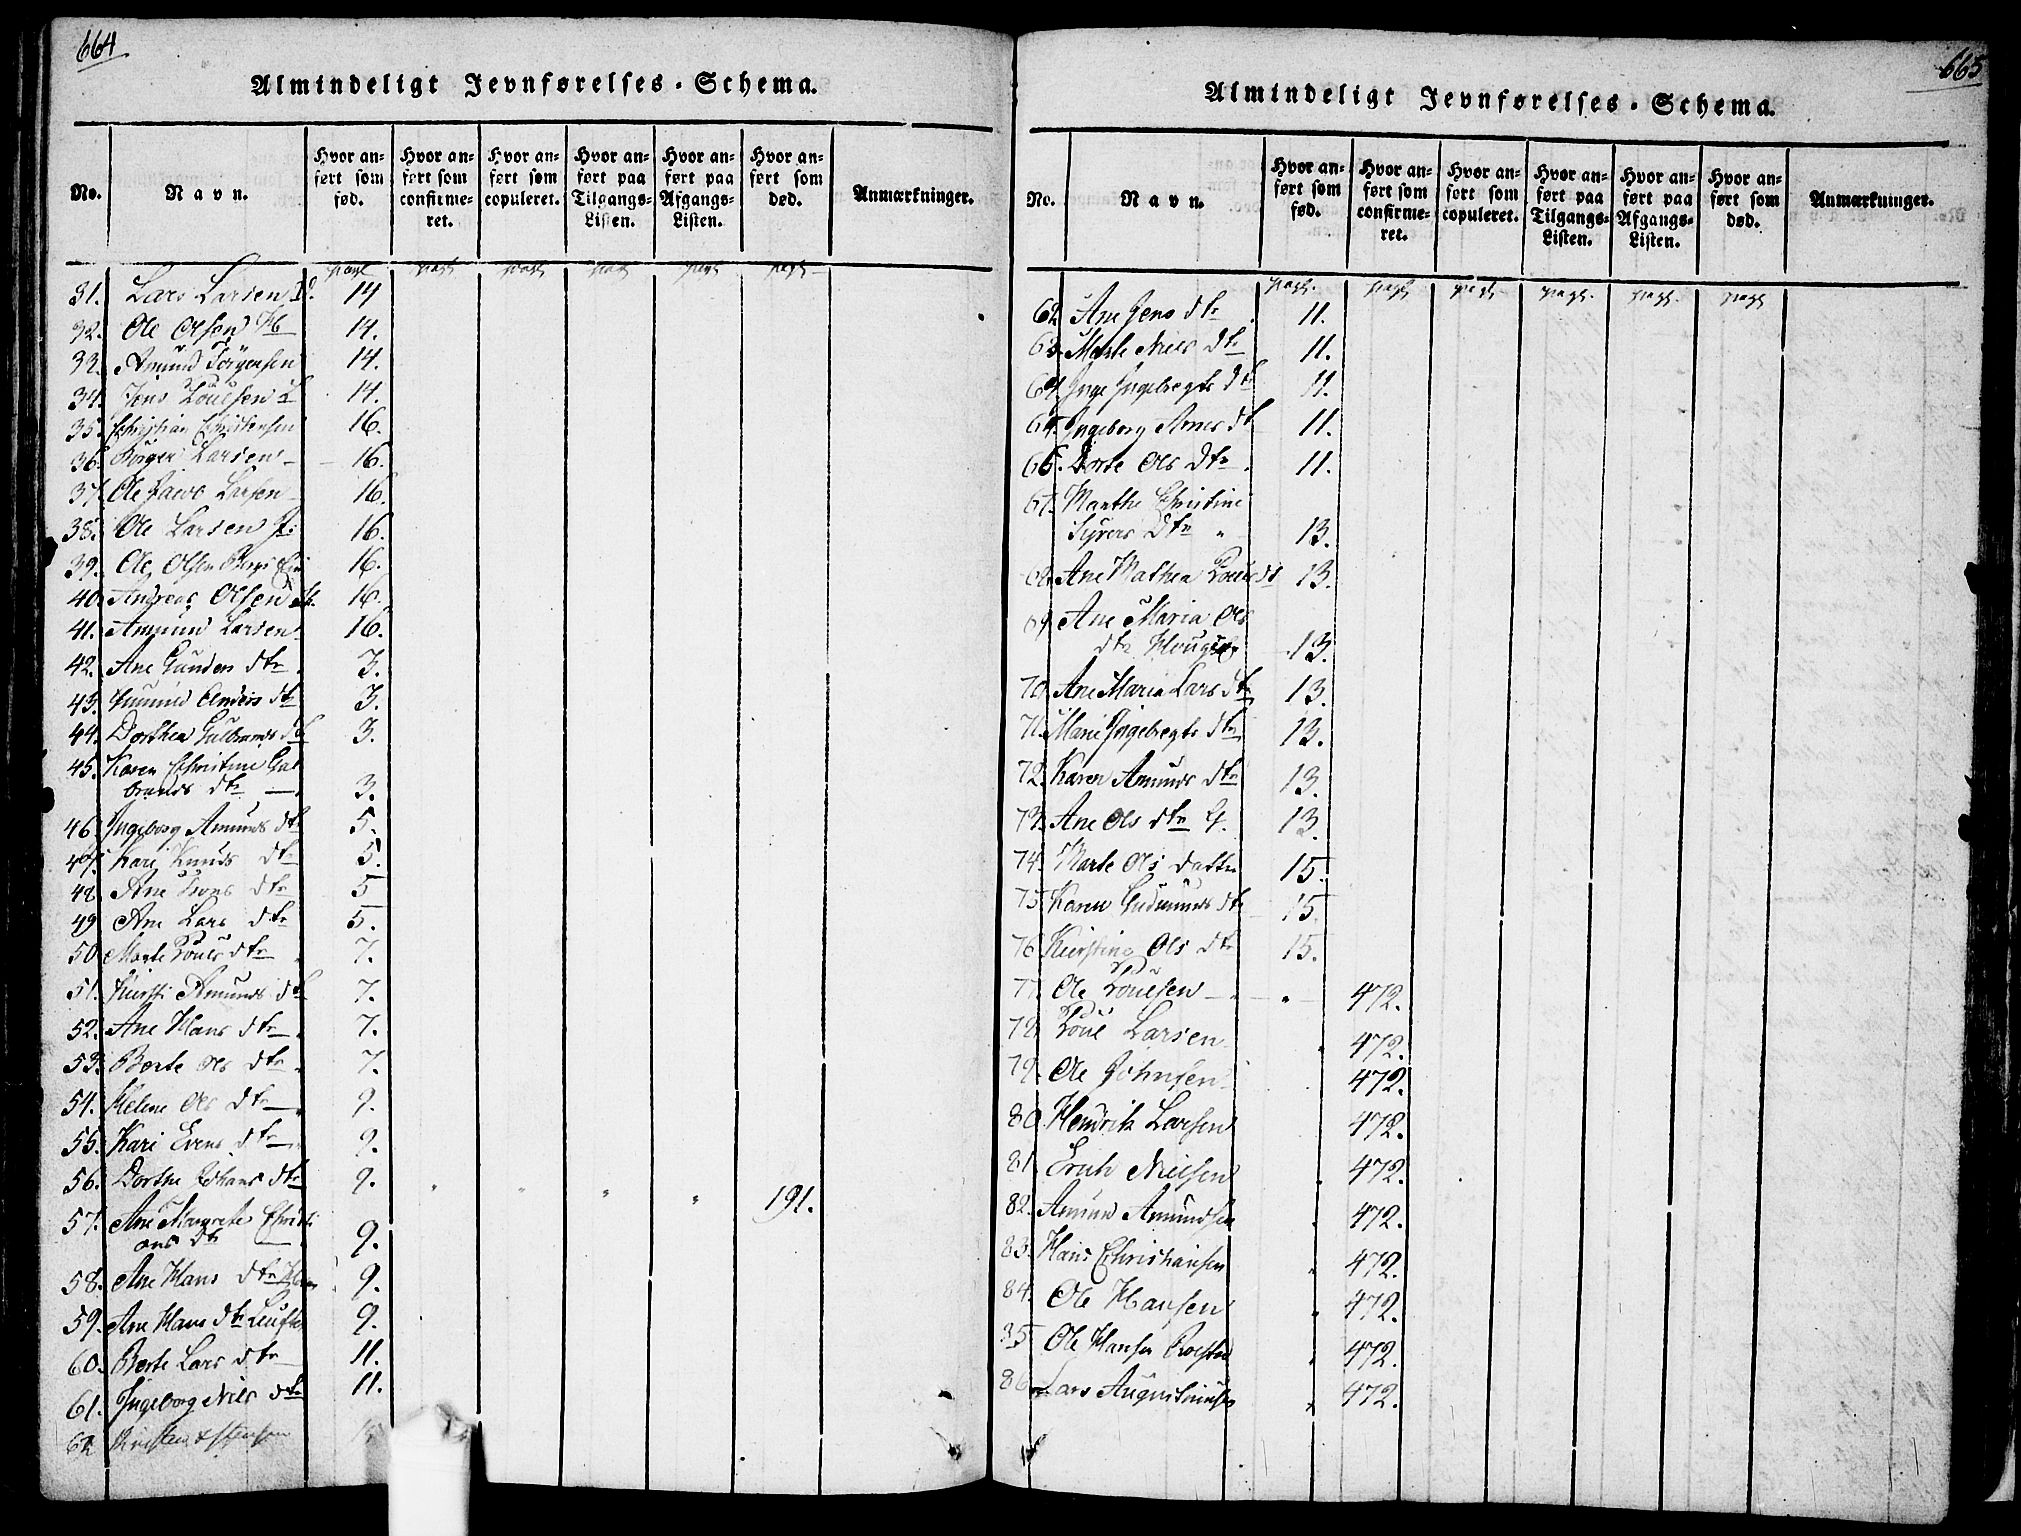 664
Almindeligt Jevnførelses-Schema.
No. Navn. Hvor anført som fød. Hvor anført som confirmeret. Hvor anført som copuleret. Hvor anført paa Tilgangs-Listen. Hvor anført paa Afgangs-Listen. Hvor anført som død. Anmærkninger.
pag. pag. pag. pag. pag. pag.
31. Lars Larsen 14
32. Ole Olsen 14.
33. Amund Jørgensen 14.
34. Jens Poulsen 14.
35. Christian Christensen 16.
36. Børger Larsen 16.
37. Ole Larsen 16.
38. Ole Larsen 16.
39. Ole Olsen 16.
40. Andreas Olsen 16.
41. Amund Larsen 16.
42. Ane Gunders dtr 3.
43. Gunnild Anders dtr 3.
44. Dorthea Gulbrands dtr 3.
45. Karen Christine Gul
brands dtr 3.
46. Ingeborg Amunds dtr 5.
47. Kari Knuds dtr 5.
48. Ane dtr 5
49 Ane Lars dtr 5.
50 Marte Pouls dtr 7.
51. Kirsti Amunds dtr 7.
52. Ane Hans dtr 7.
53. Berte Ols dtr 7.
54. Helene Ols dtr 9.
55. Kari Evens dtr 9.
56. Dorthe Johans dtr 9. " " " " 191.
57. Ane Margrete Christi
ans dtr 9.
58. Ane Hans dtr 9.
59. Ane Hans dtr 9.
60. Berte Lars dtr 11.
61. Ingeborg Niels dtr 11.
62
665
Almindeligt Jevnførelses-Schema.
No. Navn. Hvor anført som fød. Hvor anført som confirmeret. Hvor anført som copuleret. Hvor anført paa Tilgangs-Listen. Hvor anført paa Afgangs-Listen. Hvor anført som død. Anmærkninger.
pag. pag. pag. pag. pag. pag.
62 Ane Jens dtr 11.
63. Marte Niels dtr 11.
64. Inge Ingebregts dtr 11.
65. Ingeborg Arnes dtr 11.
66. Dorte Ols dtr 11.
67. Marthe Christine
Syvers dtr " 13.
68. Ane Mathea Pouls dt 13.
69. Ane Maria Ols
dtr 13.
70. Ane Maria Lars dtr 13.
71. Marie Ingebregts dtr 13.
72. Karen Amunds dtr 13.
73. Ane Ols dtr 13.
74. Marte Ols datter 15.
75. Karen Gudmunds dtr 15.
76 Kirstine Ols dtr 15.
77. Ole Poulsen " 472.
78. Poul Larsen 472.
79. Ole Johnsen 472.
80. Hendrik Larsen 472.
81. Erich Nielsen 472.
82. Amund Amundsen 472.
83. Hans Christiansen 472.
84. Ole Hansen 472.
85 Ole Hansen 472.
86. Lars Augustinusen 472.